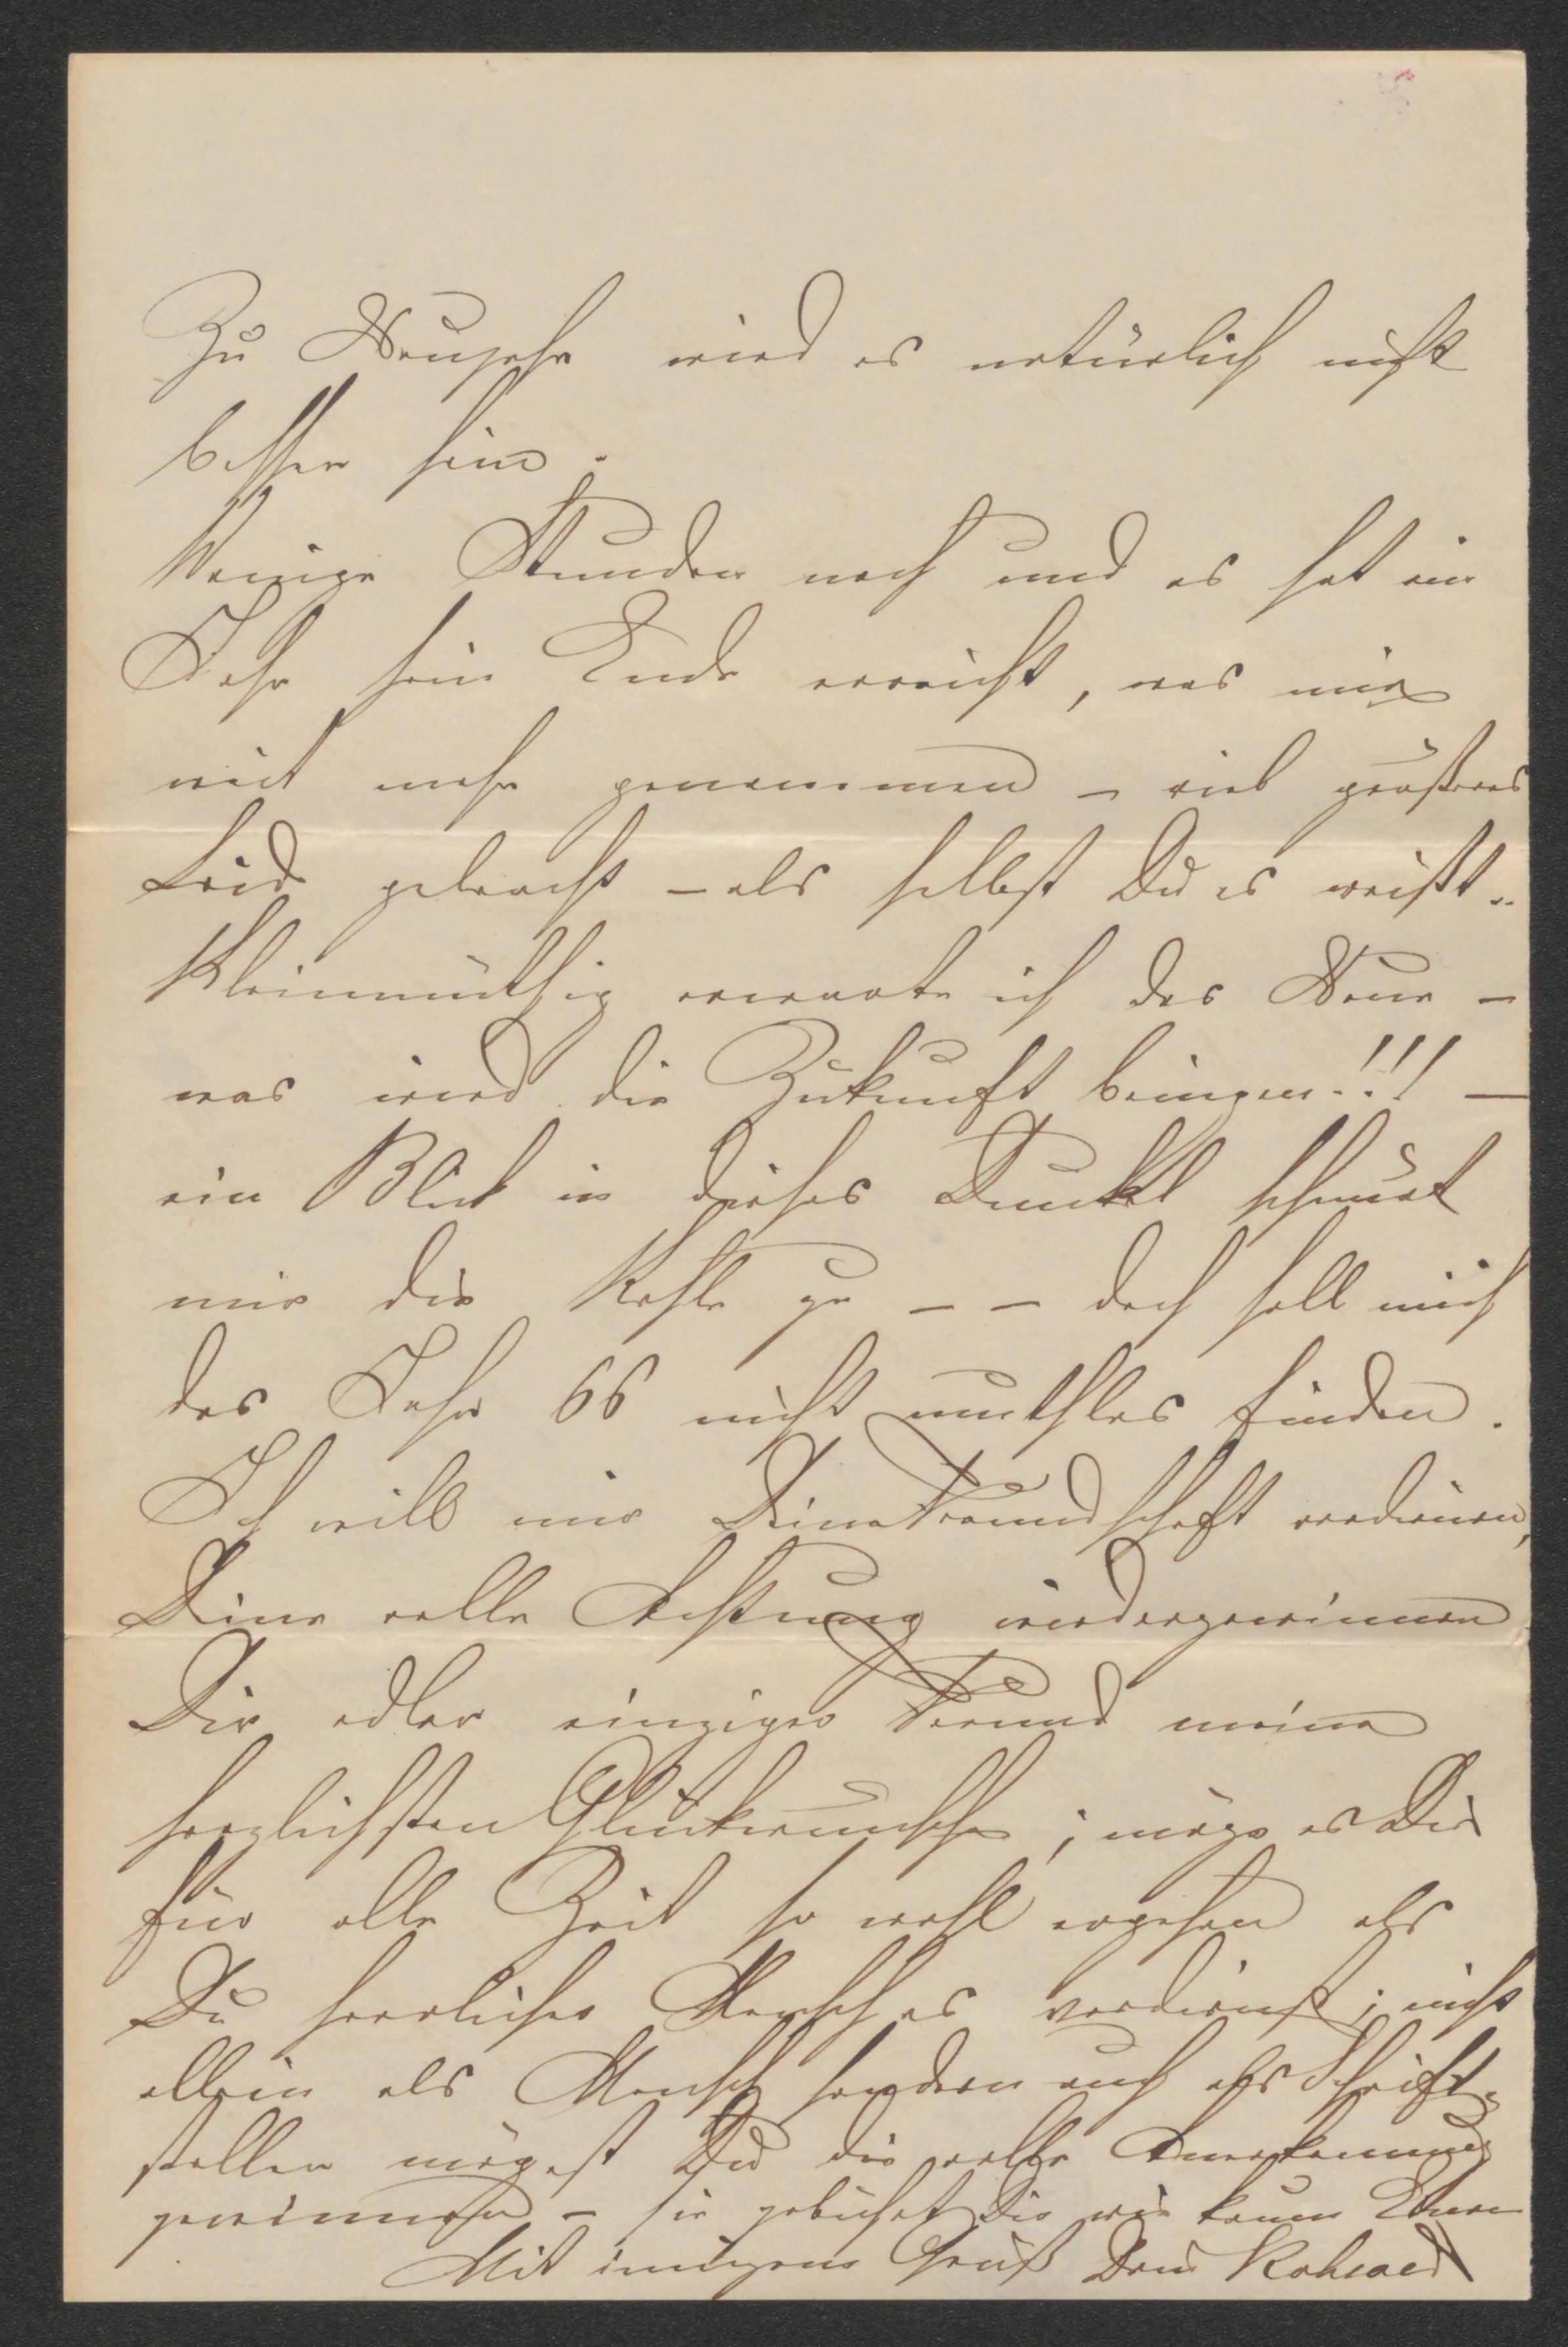 Zu Neujahr wird es natürlich nicht
besser sein.
Wenige Stunden noch und es hat ein
Jahr sein Ende erreicht, was mir
weit mehr genommen – viel größeres
Leid gebracht – als selbst Du es weißt..
Kleinmüthig erwarte ich das Neue –
was wird die Zukunft bringen!!! –
ein Blick in dieses Dunkel schnürt
mir die Kehle zu – – doch soll mich
das Jahr 66 nicht muthlos finden.
Ich will mir Deine Freundschaft verdienen,
Deine volle Achtung wiedergewinnen
Dir edler einziger Freund meine
herzlichsten Glückwünsche; möge es Dir
für alle Zeit so wohl ergehen als
Du herrlicher Mensch es verdienst; nicht
allein als Mensch sondern auch als Schrift-
steller mögest Du die volle Anerkennung
gewinnen – sie gebührt Dir wie kaum Einem
Mit innigem Gruß Dein